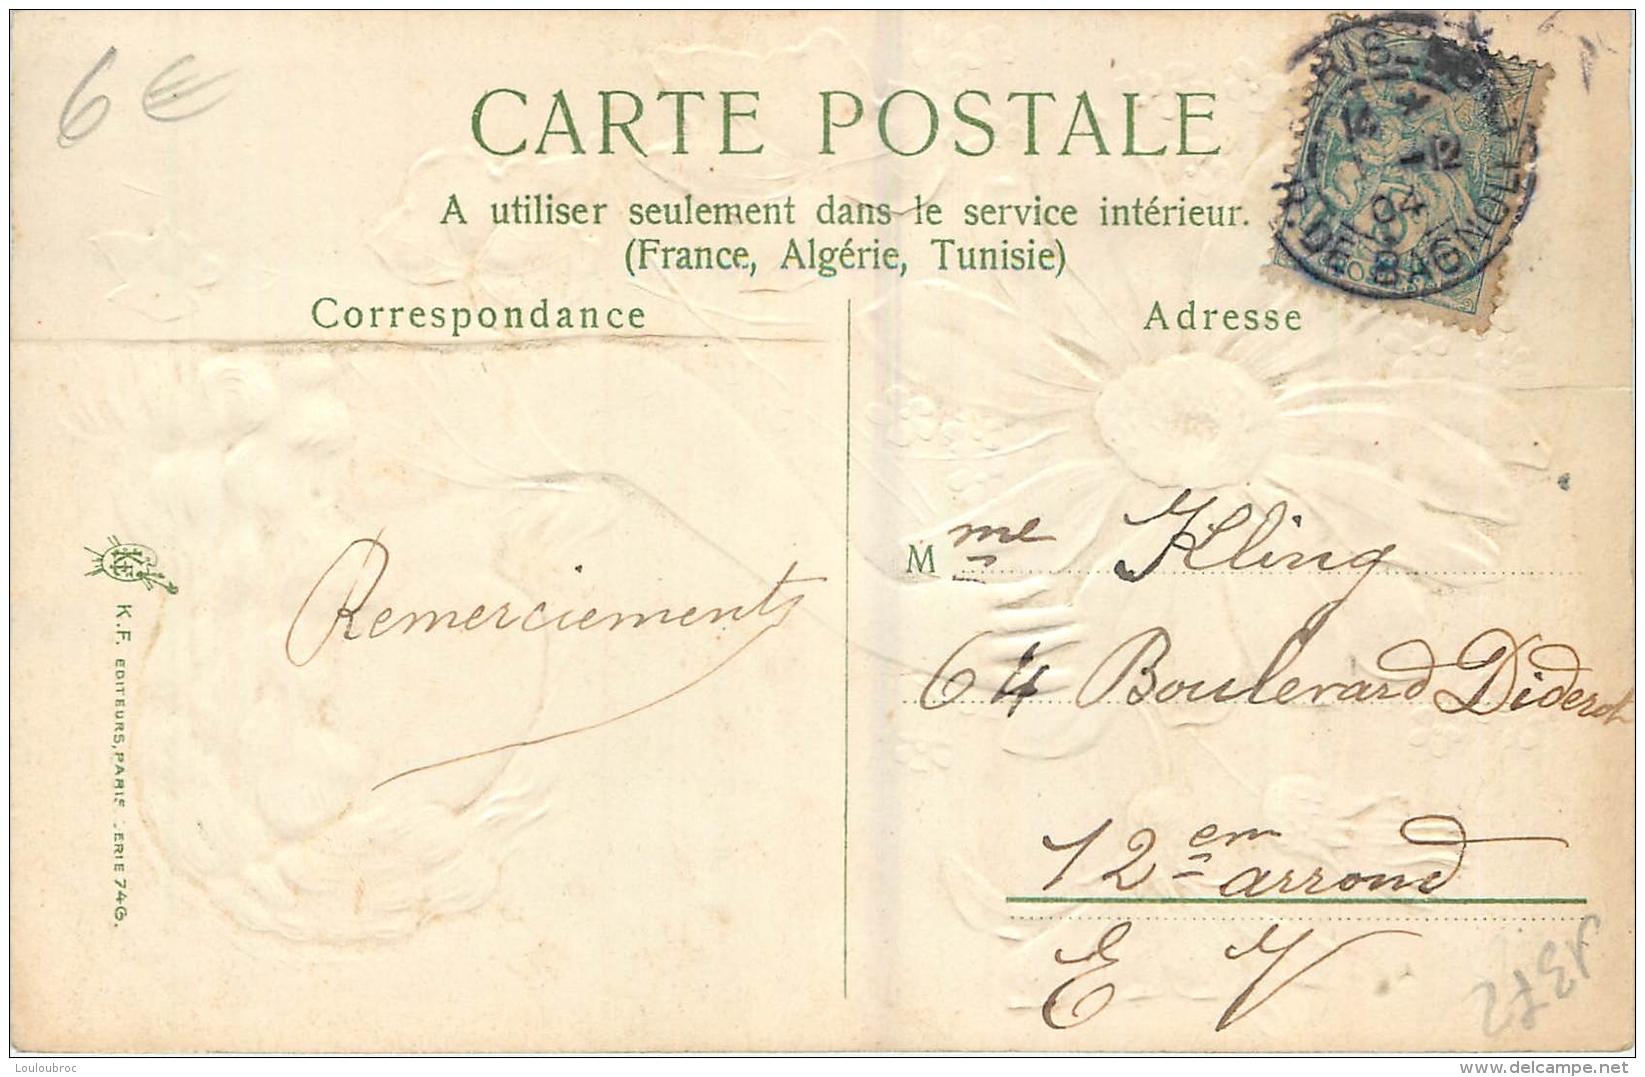 6€
CARTE POSTALE
A utiliser seulement dans le service intérieur.
(France, Algérie, Tunisie)
Correspondance
Adresse
14
-12
04
R. DE BAGNOLET
Remerciements
Mme Kling
64 Boulevard Diderot
12em arrond
E V
K.F. EDITEURS, PARIS
ERIE 746.
1372
Louloubroc
www.delcampe.net